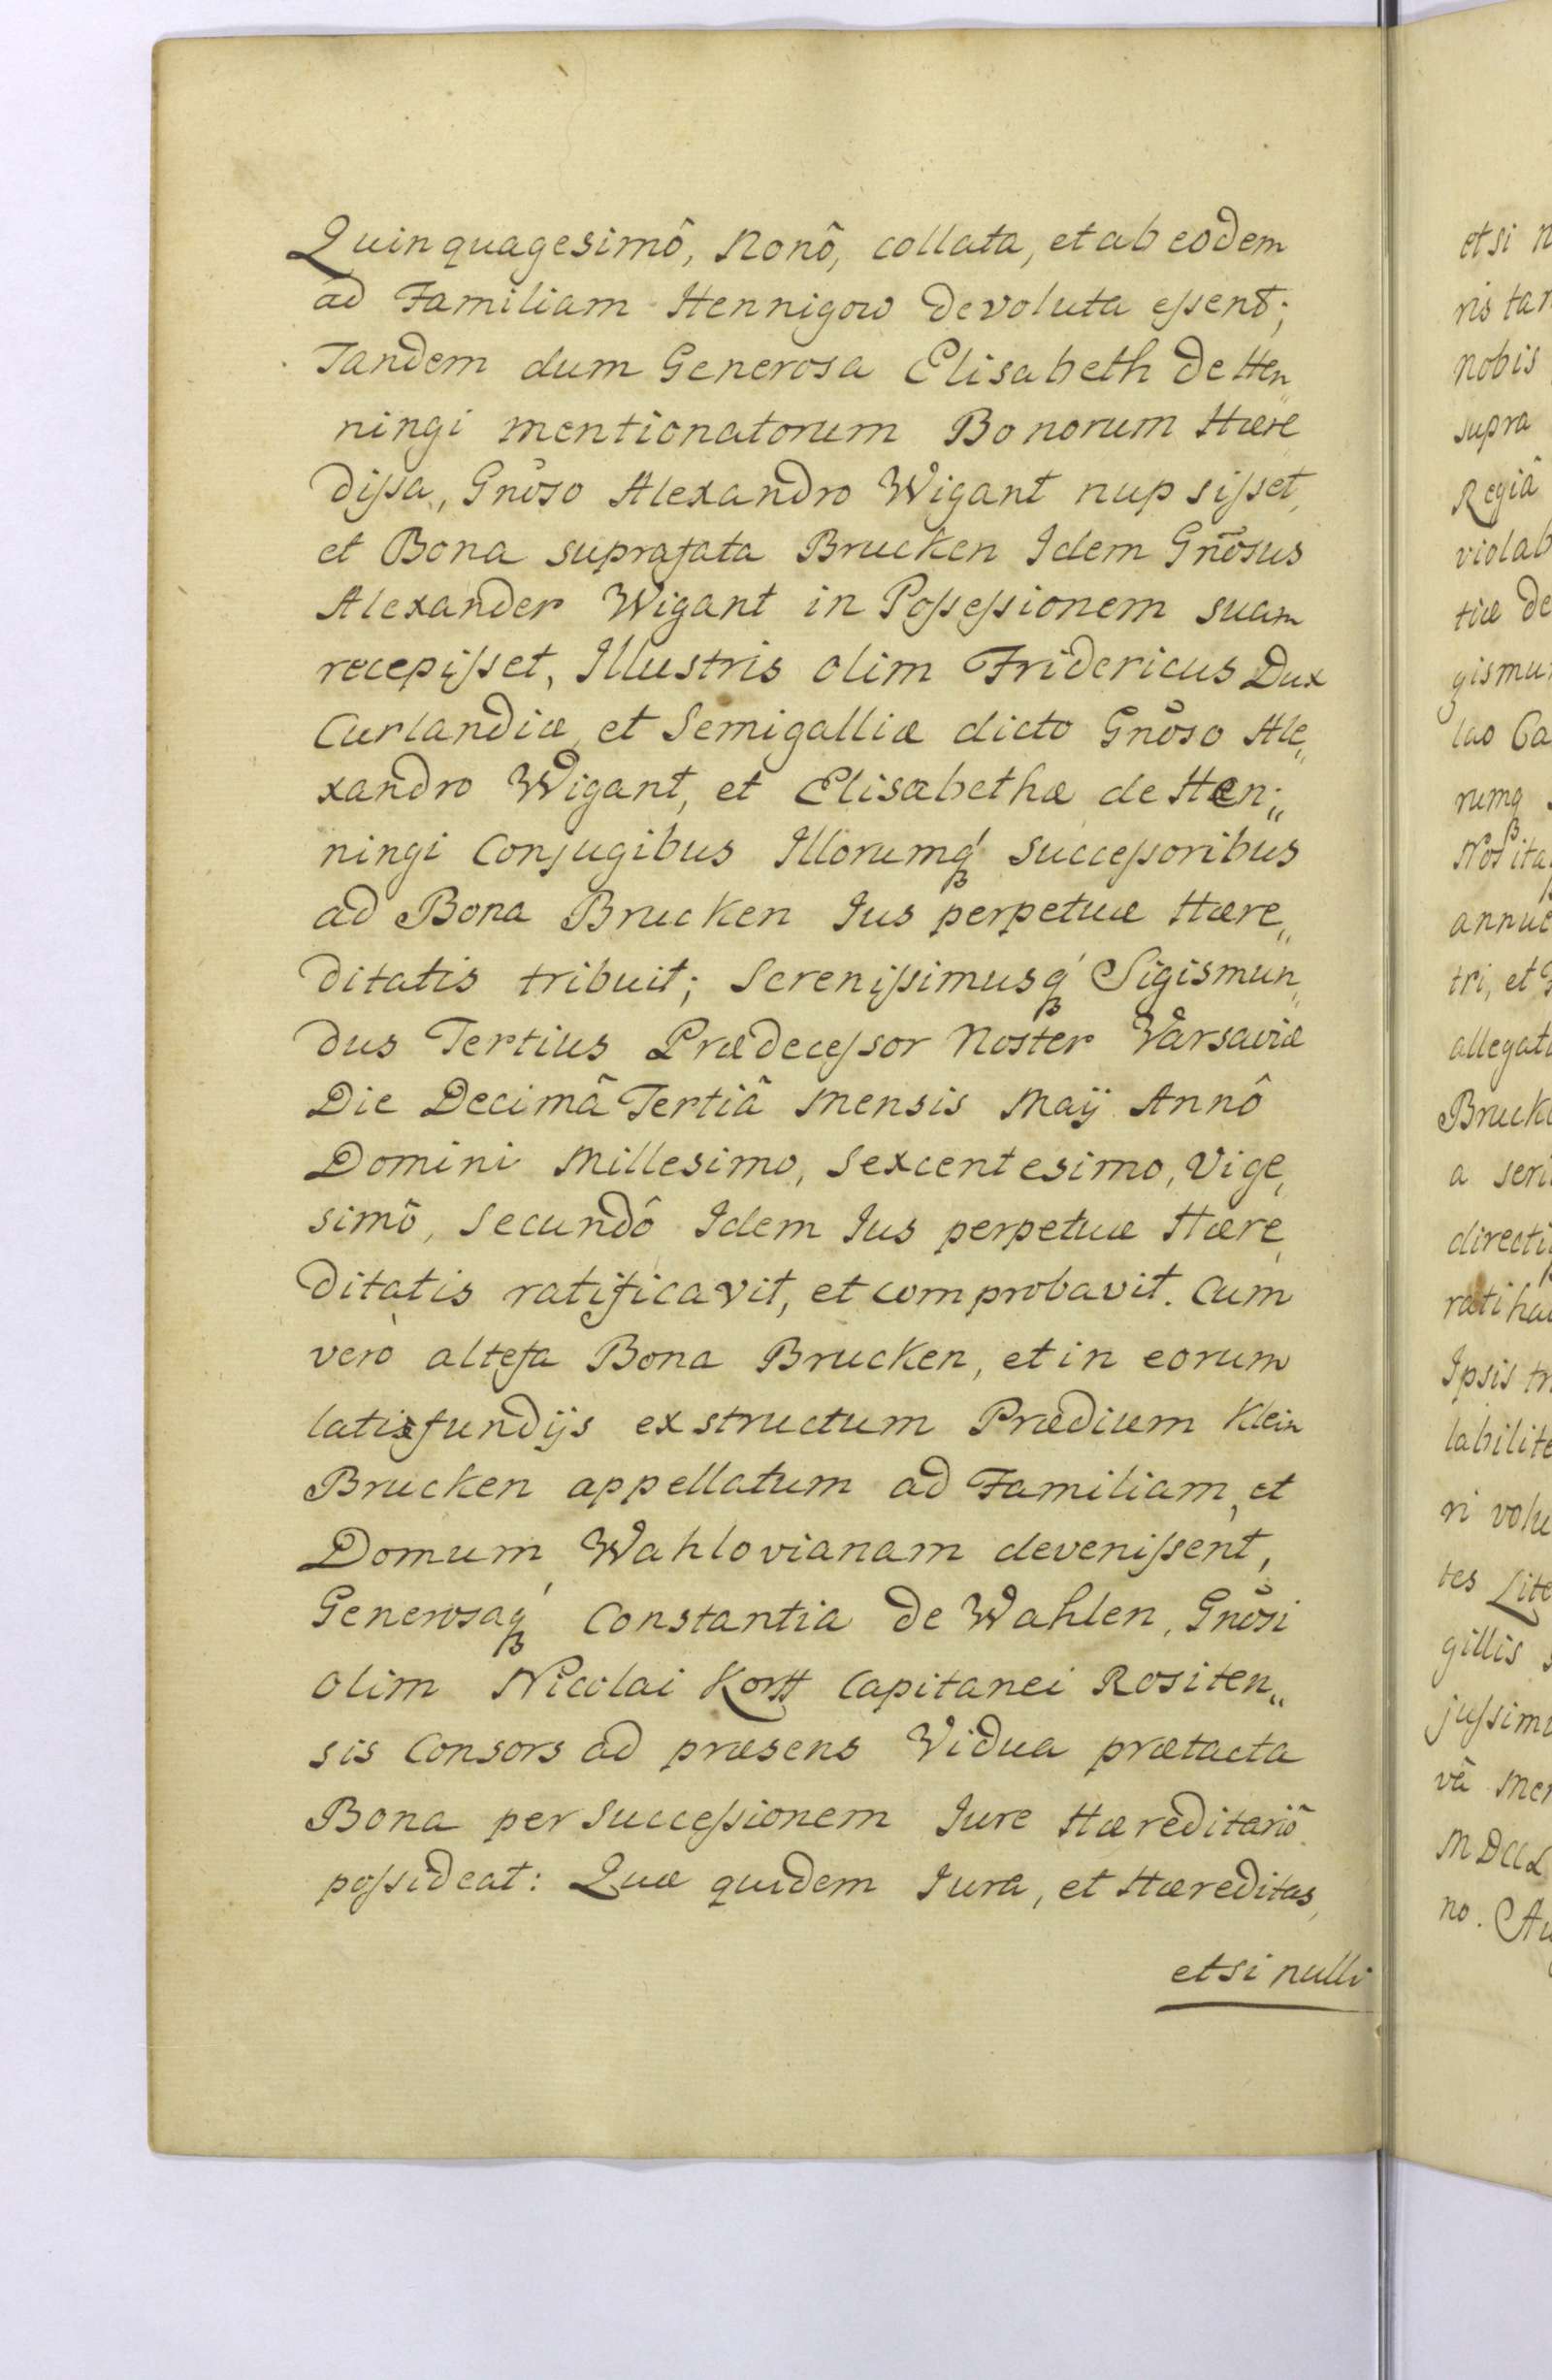 Quinquagesimô, Nonô, collata, et ab eodem
ad Familiam Hennigow devoluta essent;
Tandem dum Generosa Elisabeth de Hen„
ningi mentionatorum Bonorum Hære„
dissa, Gnoso Alexandro Wigant nupsisset,
et Bona suprafata Brucken Idem Gnosus
Alexander Wigant in Possessionem suam
recepisset, Illustris olim Fridericus Dux
Curlandiæ, et Semigalliæ dicto Gnoso Ale„
xandro Wigant, et Elisabethæ de Hen„
ningi Conjugibus Illorumq́ Successoribus
ad Bona Brucken Jus perpetuæ Hære„
ditatis tribuit; Serenissimusq́ Sigismun„
dus Tertius Prædecessor Noster Varsaviæ
Die Decimâ Tertiâ Mensis Maÿ Annô
Domini Millesimo, Sexcentesimo, Vige„
simô, Secundô Idem Jus perpetuæ Hære„
ditatis ratificavit, et comprobavit. Cum
verò altefa Bona Brucken, et in eorum
latisfundÿs exstructum Prædium Klein
Brucken appellatum ad Familiam, et
Domum Wahlovianam devenissent,
Generosaq́ Constantia de Wahlen, Gnosi
olim Nicolai Korff Capitanei Rositen„
sis Consors ad præsens Vidua prætacta
Bona per Successionem Jure Hæreditariô
possideat: Quæ quidem Jura, et Hæreditas,
etsi nulli
et si n
ris tan
nobis
supra
Regiâ
violab
tiæ de
gismu
lao Ca
rumq
Nos ita
annue
tri, et
allegat
Bruck
a seri
directi
ratiha
Ipsis tr
labilite
ri volu
tes Lite
gillis s
jussim
vâ Men
no. Au